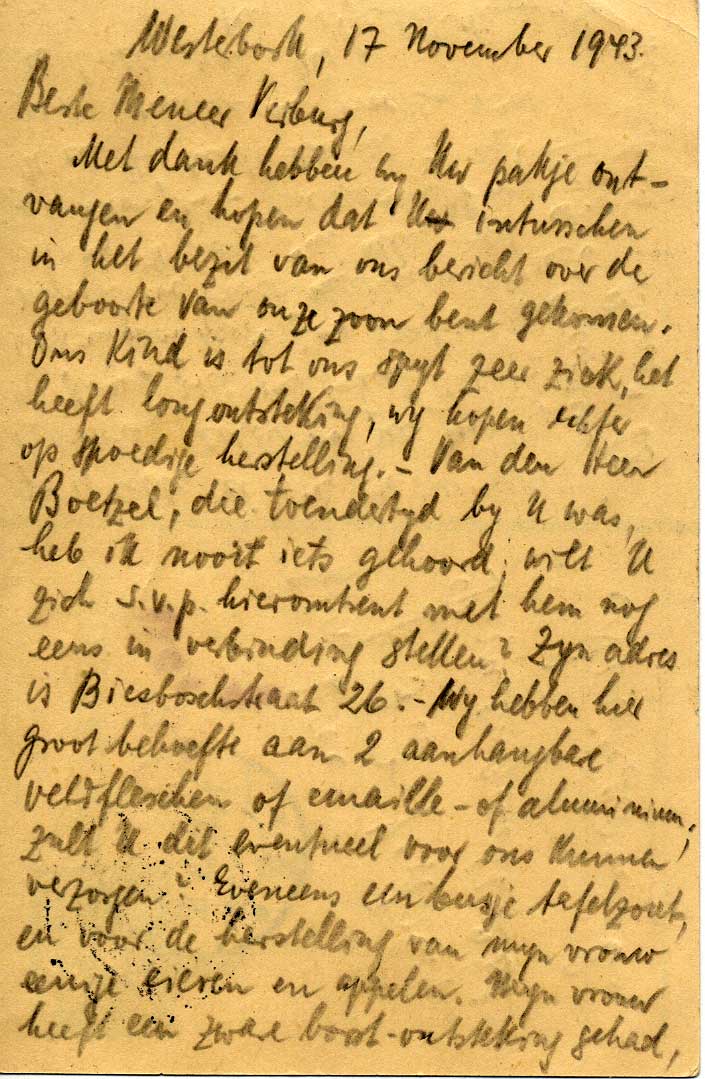 Westerbork, 17 November 1943.
Beste Meneer Verburg,
Met dank hebben wy Uw pakje ont-
vangen en hopen dat U intusschen
in het bezit van ons bericht over de
geboorte van onze zoon bent gekomen.
Ons Kind is tot ons spyt zeer ziek, het
heeft longontsteking, wy hopen echter
op spoedige herstelling. - Van den Heer
Boetzel, die toendertyd by U was,
heb ik nooit iets gehoord, wilt U
zich s.v.p. hieromtrent met hem nog
eens in verbinding stellen? Zyn adres
is Biesboschstraat 26. - Wy hebben hier
groot behoefte aan 2 aanhangbare
veldfleschen of emaille - of aluminium;
zult U dit eventueel voor ons kunnen
verzorgen? Eveneens een busje tafelzout,
en voor de herstelling van myn vrouw
eenige eieren en appelen. Myn vrouw
heeft een zware borst-ontsteking gehad,